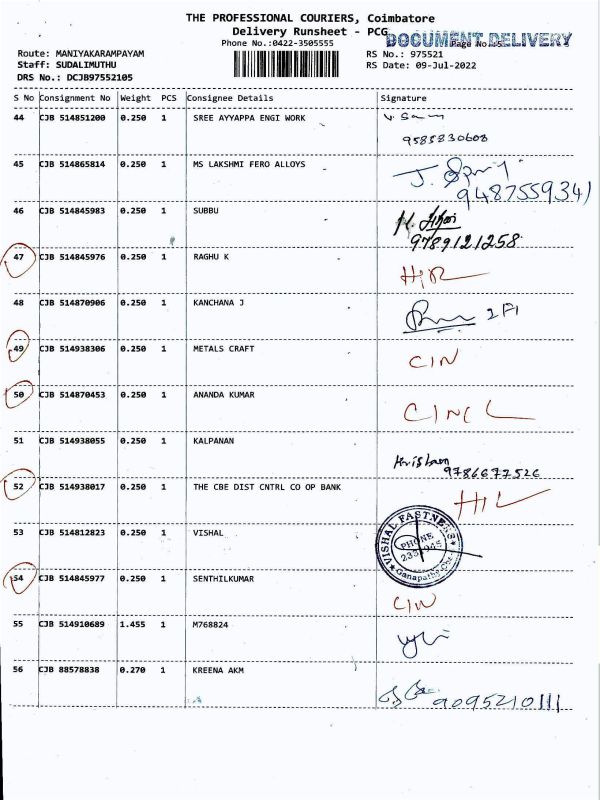 THE PROFESSIONAL COURIERS, Coimbatore
Delivery Runsheet - PCG
DOCUMENT DELIVERY
Phone No.:0422-3505555
Page No. 5
Route: MANIYAKARAMPAYAM
RS No.: 975521
Staff: SUDALIMUTHU
RS Date: 09-Jul-2022
DRS No.: DCJB97552105
S No Consignment No Weight PCS Consignee Details Signature
44 CJB 514851200 0.250 1 SREE AYYAPPA ENGI WORK
9585830608
45 CJB 514865814 0.250 1 MS LAKSHMI FERO ALLOYS
9487559341
46 CJB 514845983 0.250 1 SUBBU
9789121258
47 CJB 514845976 0.250 1 RAGHU K
48 CJB 514870906 0.250 1 KANCHANA J
49 CJB 514938306 0.250 1 METALS CRAFT CIN
50 CJB 514870453 0.250 1 ANANDA KUMAR
51 CJB 514938055 0.250 1 KALPANAN
9786677526
52 CJB 514938017 0.250 1 THE CBE DIST CNTRL CO OP BANK
53 CJB 514812823 0.250 1 VISHAL
VISHAL FASTNESS
PHONE
Ganapathy
54 CJB 514845977 0.250 1 SENTHILKUMAR
CIN
55 CJB 514910689 1.455 1 M768824
56 CJB 88578838 0.270 1 KREENA AKM
9095210111